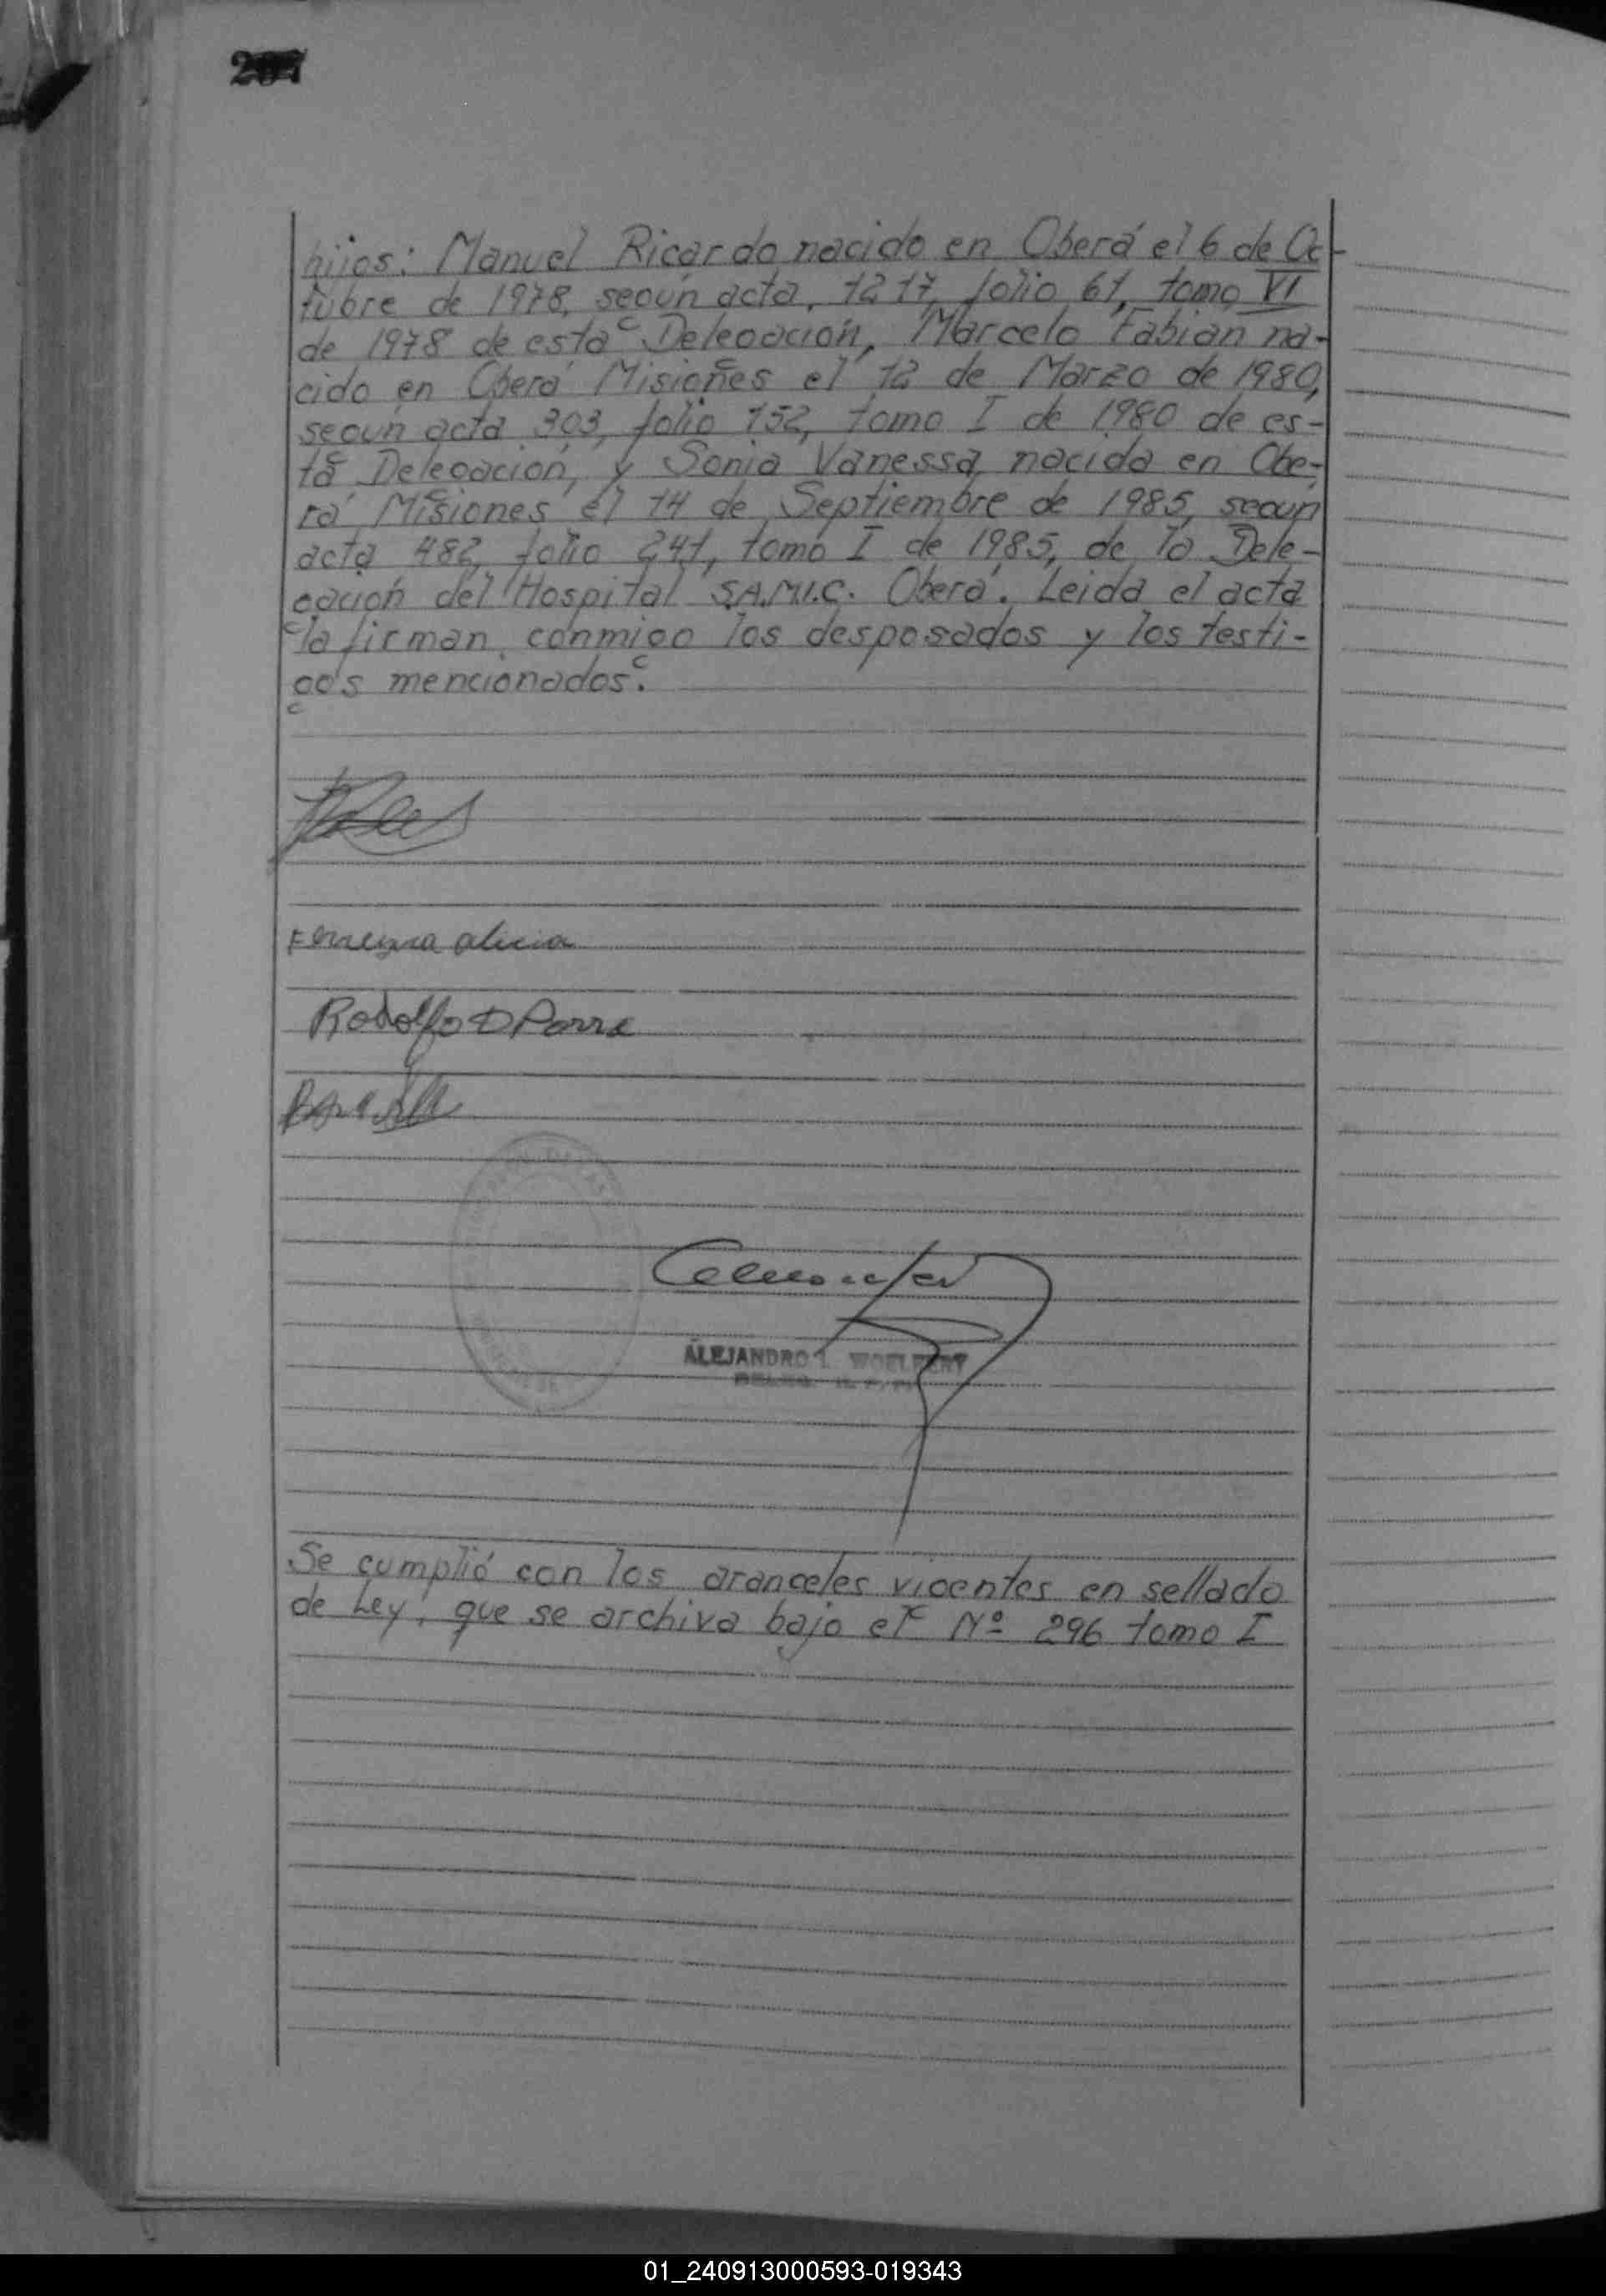 hijos: Manuel Ricardo nacido en Oberá el 6 de Oc-
tubre de 1978, según acta, 1217, folio 61, tomo VI
de 1978 de esta Delegación, Marcelo Fabian na-
cido en Oberá Misiones el 12 de Marzo de 1980,
según acta 303, folio 152, tomo I de 1980 de es-
ta Delegación, y Sonia Vanessa nacida en Obe-
rá Misiones el 14 de Septiembre de 1985, según
acta 482, folio 241, tomo I de 1985, de la Dele-
gación del Hospital S.A.M.I.C. Oberá. Leida el acta
la firman conmigo los desposados y los testi-
gos mencionados.
Ferreyra alicia
Rodolfo D Parra
ALEJANDRO WOELFERT
Se cumplió con los aranceles vigentes en sellado
de Ley, que se archiva bajo el Nº 296 tomo I
01_240913000593-019343